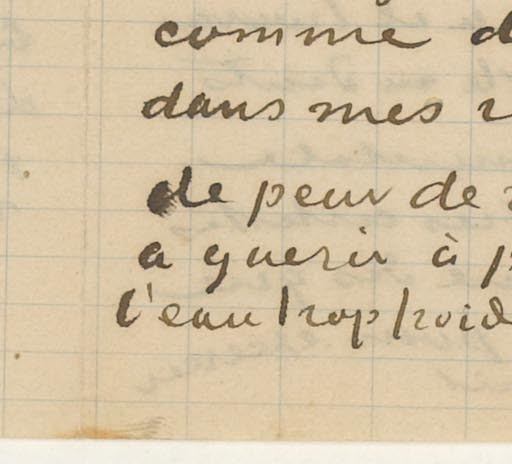 comme d
dans mes
de peur de
a guerir à p
l'eau trop froid